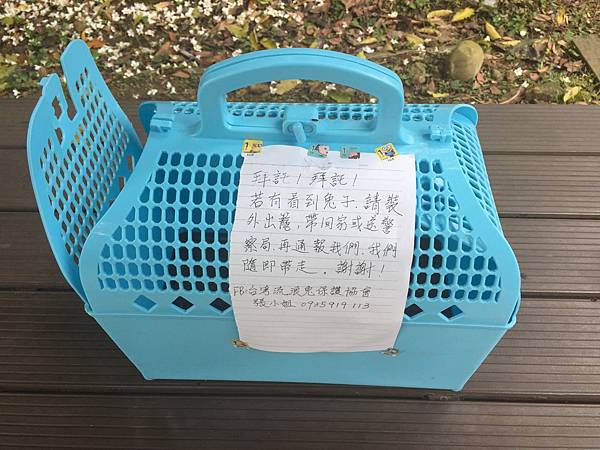 拜託！拜託！
若有看到兔子.請裝
外出籠,帶回家或送警
察局.再通報我們.我們
隨即帶走。謝謝！
FB:台灣流浪兔保護協會
張小姐 0925919113